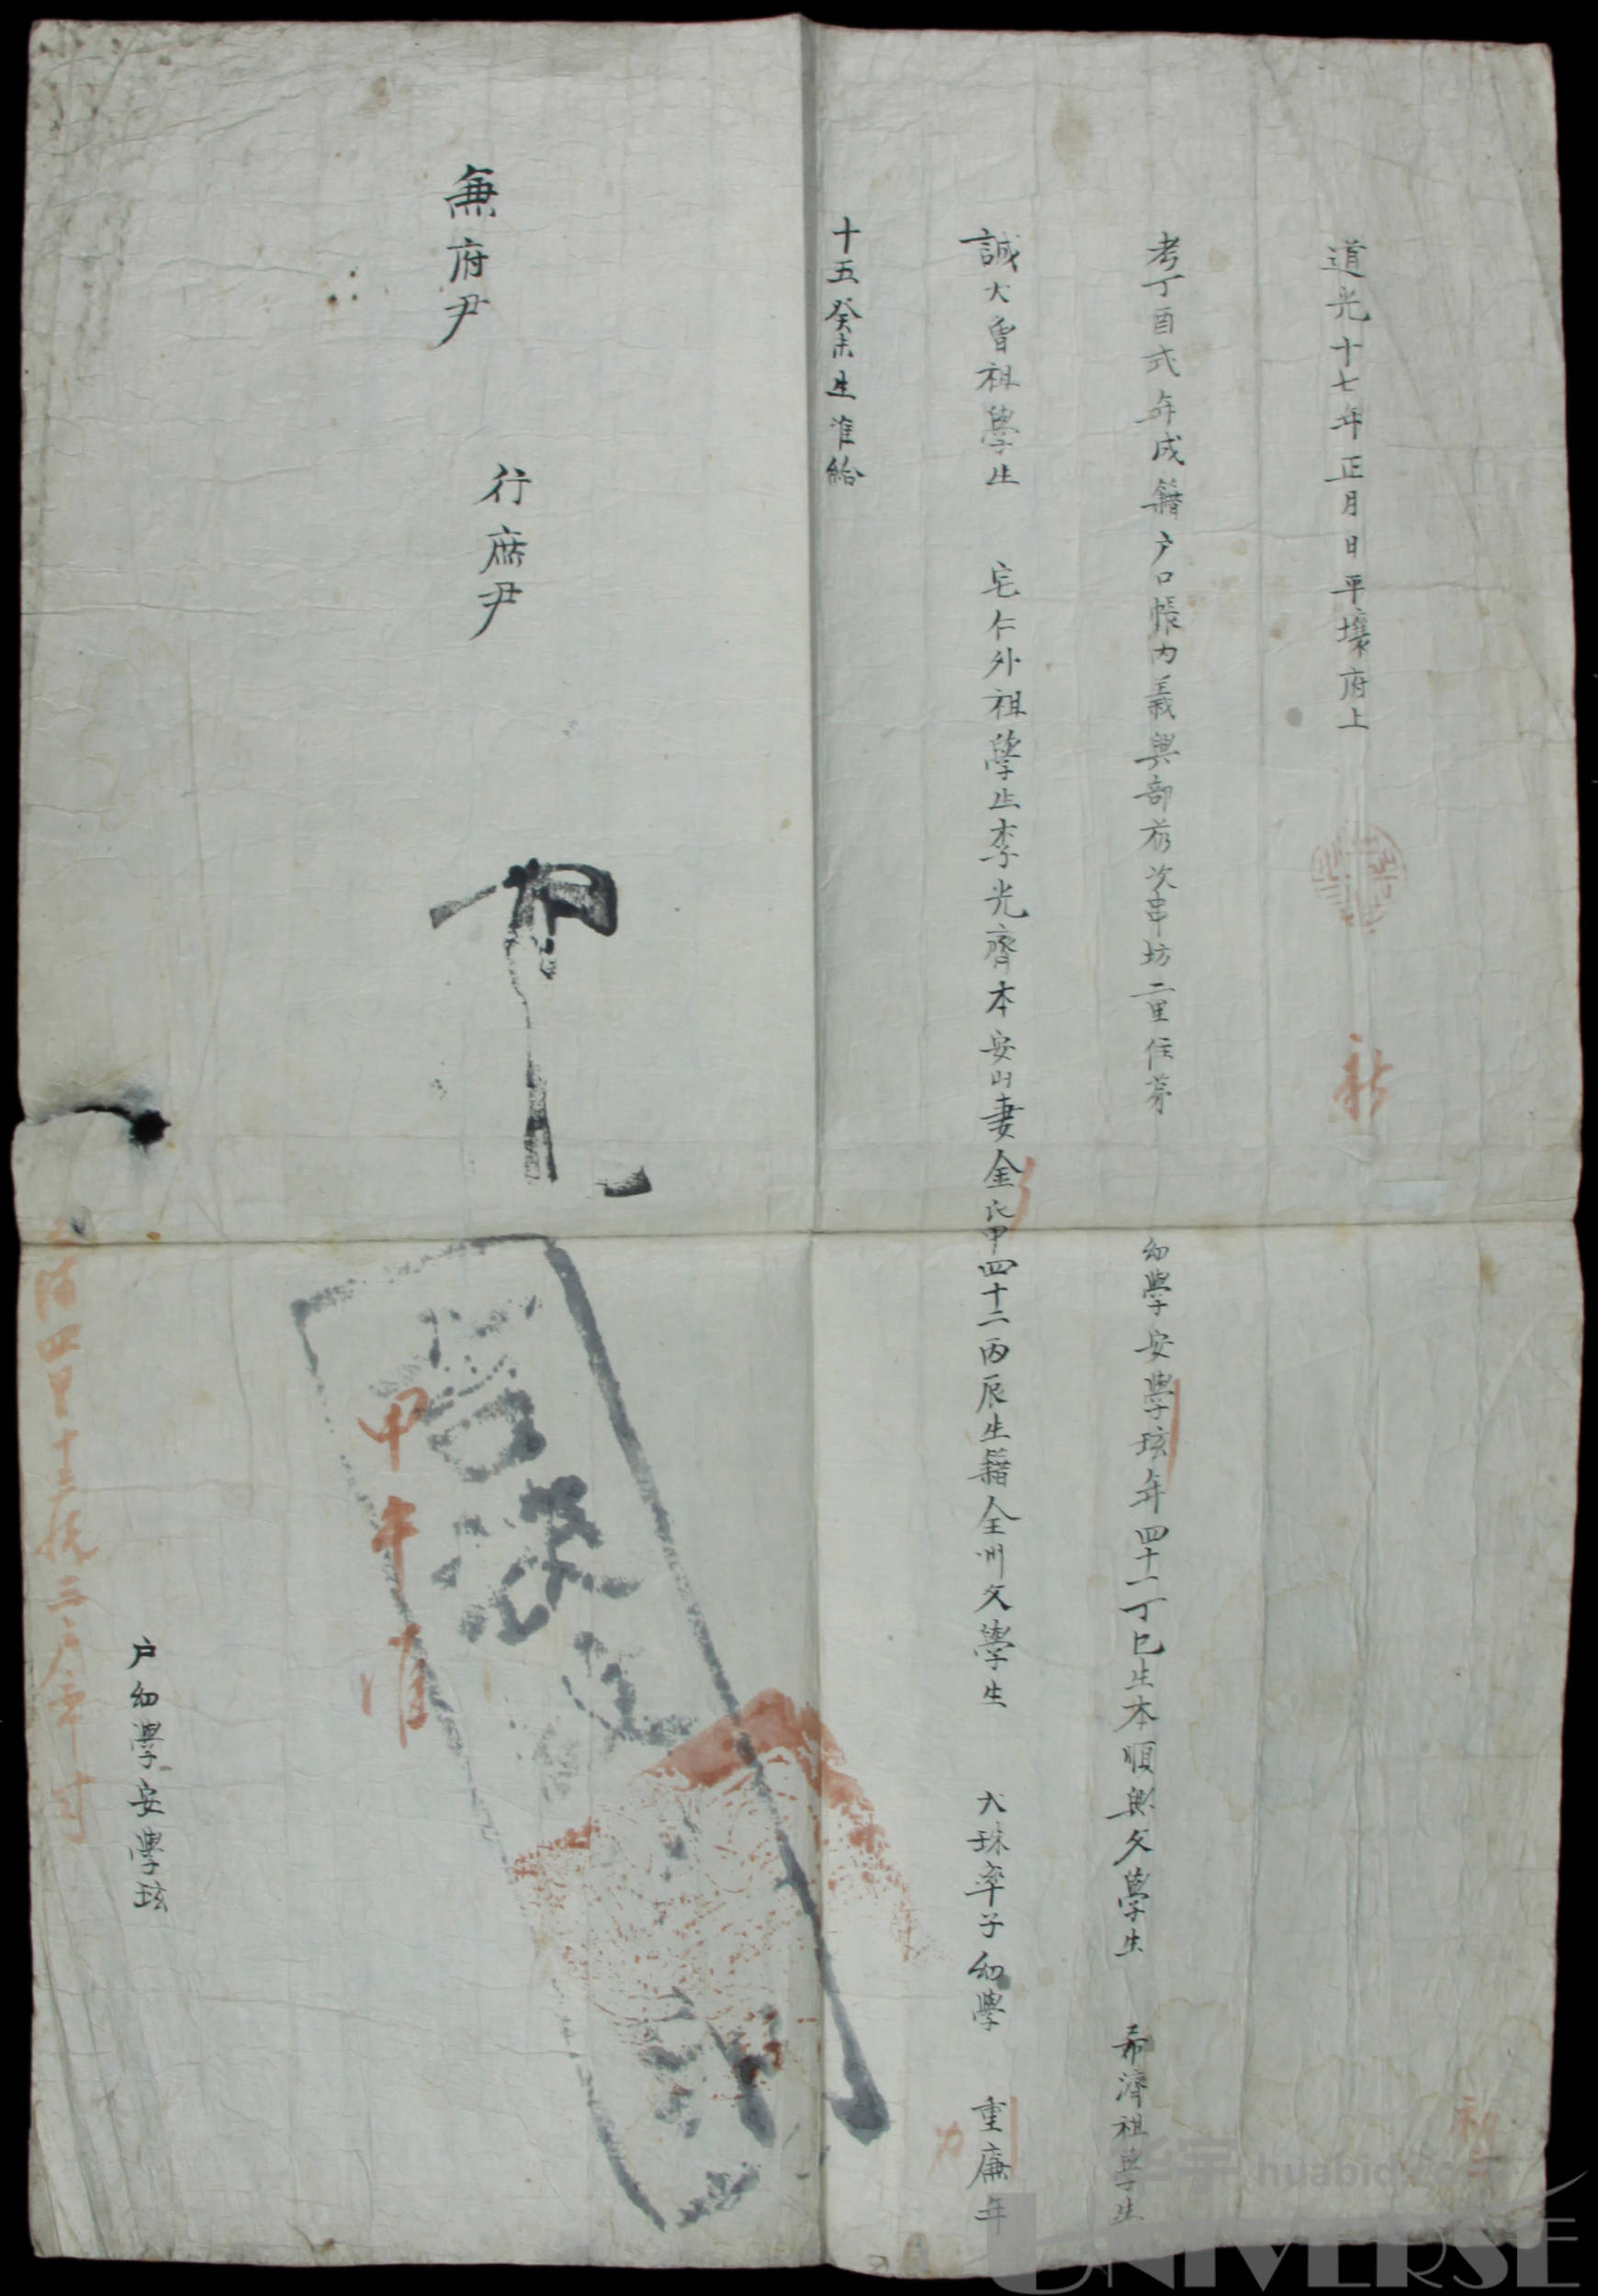 道光十七年正月日平壤府上
新
考丁酉式年成籍戶口帳內義興部 次串坊二里住 幼學安學玹年四十一丁巳生本順興父學生 希濟祖學生
誠大曾祖學生 宅仁外祖學生李光齊本安山妻金氏年四十二丙辰生籍全州父學生 大珠率子幼學 重廉年
十五癸未生准給
行庶尹
兼府尹
甲午准
戶幼學安學玹
huabid
UNIVERSE